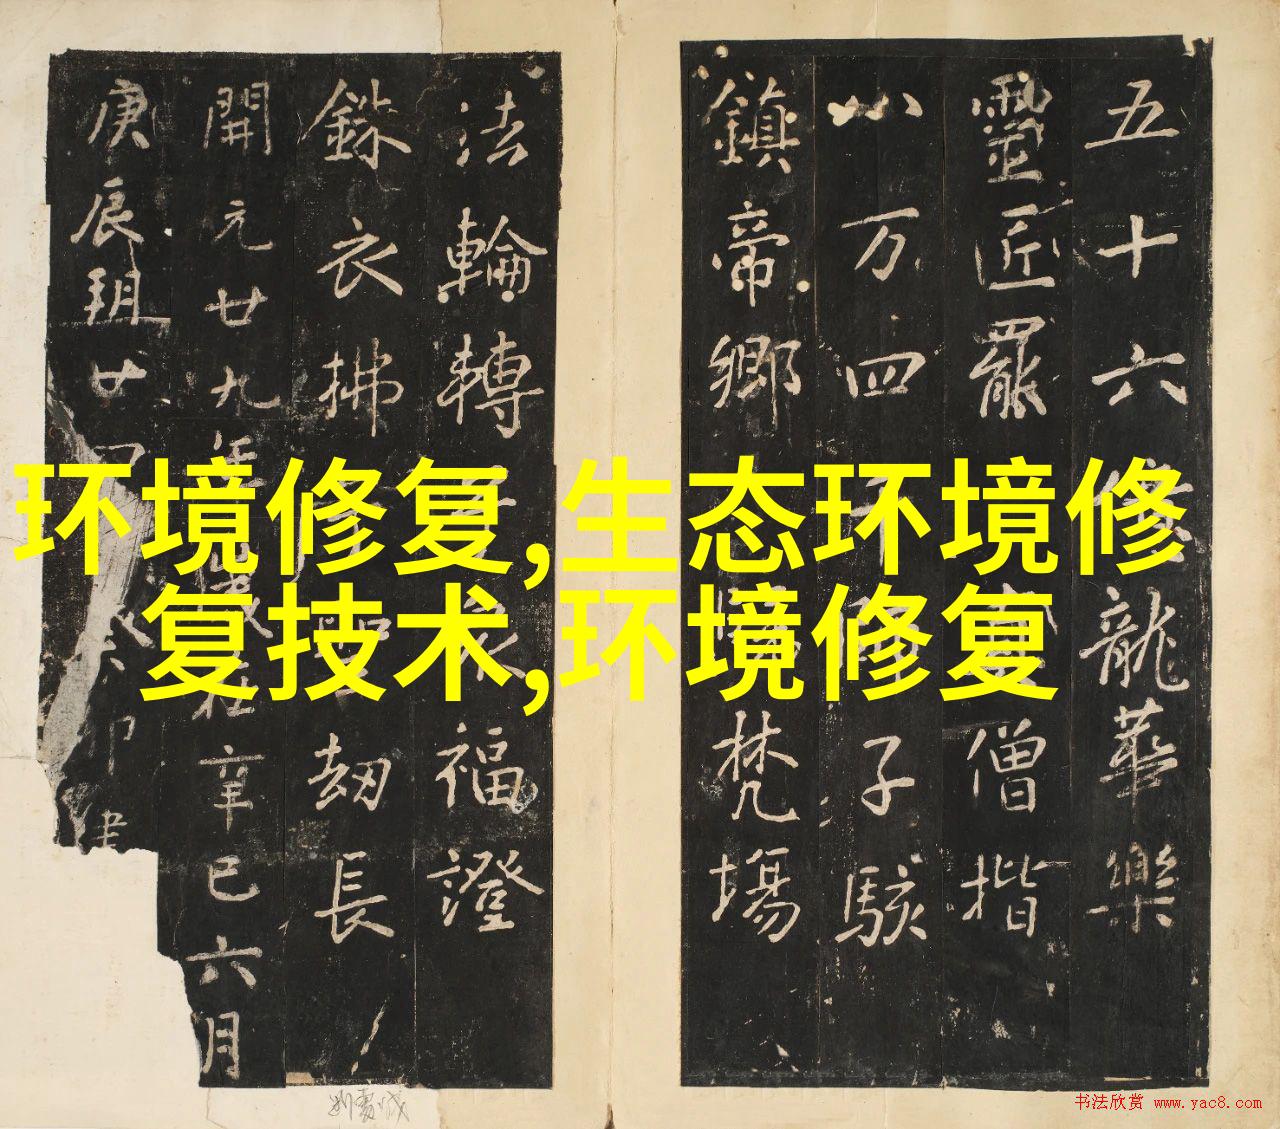 环境修复,生态环境修
复技术,环境修复
五十六 龍華樂
靈匠罷 僧揩
八万四 子駭
鎮帝鄉 梵場
法輪轉 福證
銖衣拂 劫長
開元廿九年歲在辛巳六月
庚辰朔廿四 癸卯建
书法欣赏 www.yac8.com